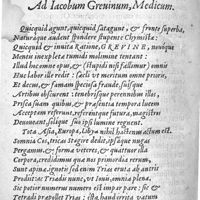 Ad Iacobum Greuinum, Medicum.
Quicquid agunt, quicquid satagunt, & fronte superba,
Naturaque audent spondere stupente Chymistæ:
Quicquid & inuita Ratione, GREVINE, nouique
Mentis inexpletæ tumido molimine tentant:
Illud hoc omne opus, & (stupidi nisi fallimur) omnis
Huc labor ille redit: (cæli vt metitum omne potentis
Et decus, & famam specie fraudis,
Artibus obscurent tenebrosæ perennibus illus,
Prisca suum quibus, & præsentia tempora lucem
Acceptam referunt, referéntque futura, magistri,
Deuouéant, solíque suo ipsi lumine regnent.
Tota Asia, Europa, Libya nihil hactenus actum est.
Somnia Cos, tricas Stagira dedit, ipsáque nugas
Pergamum, & forma veteres, & quattuor illa
Corpora, credidimus qua nos primordia rerum,
Sunt apina, ignotis sed enim Trias eruta ab antris
Proditur: Triadis nutu, vt Iouis, omnia plena.
Sic patior numerus numeri est impar: sic &
Tetradi prapollet Trias: ista